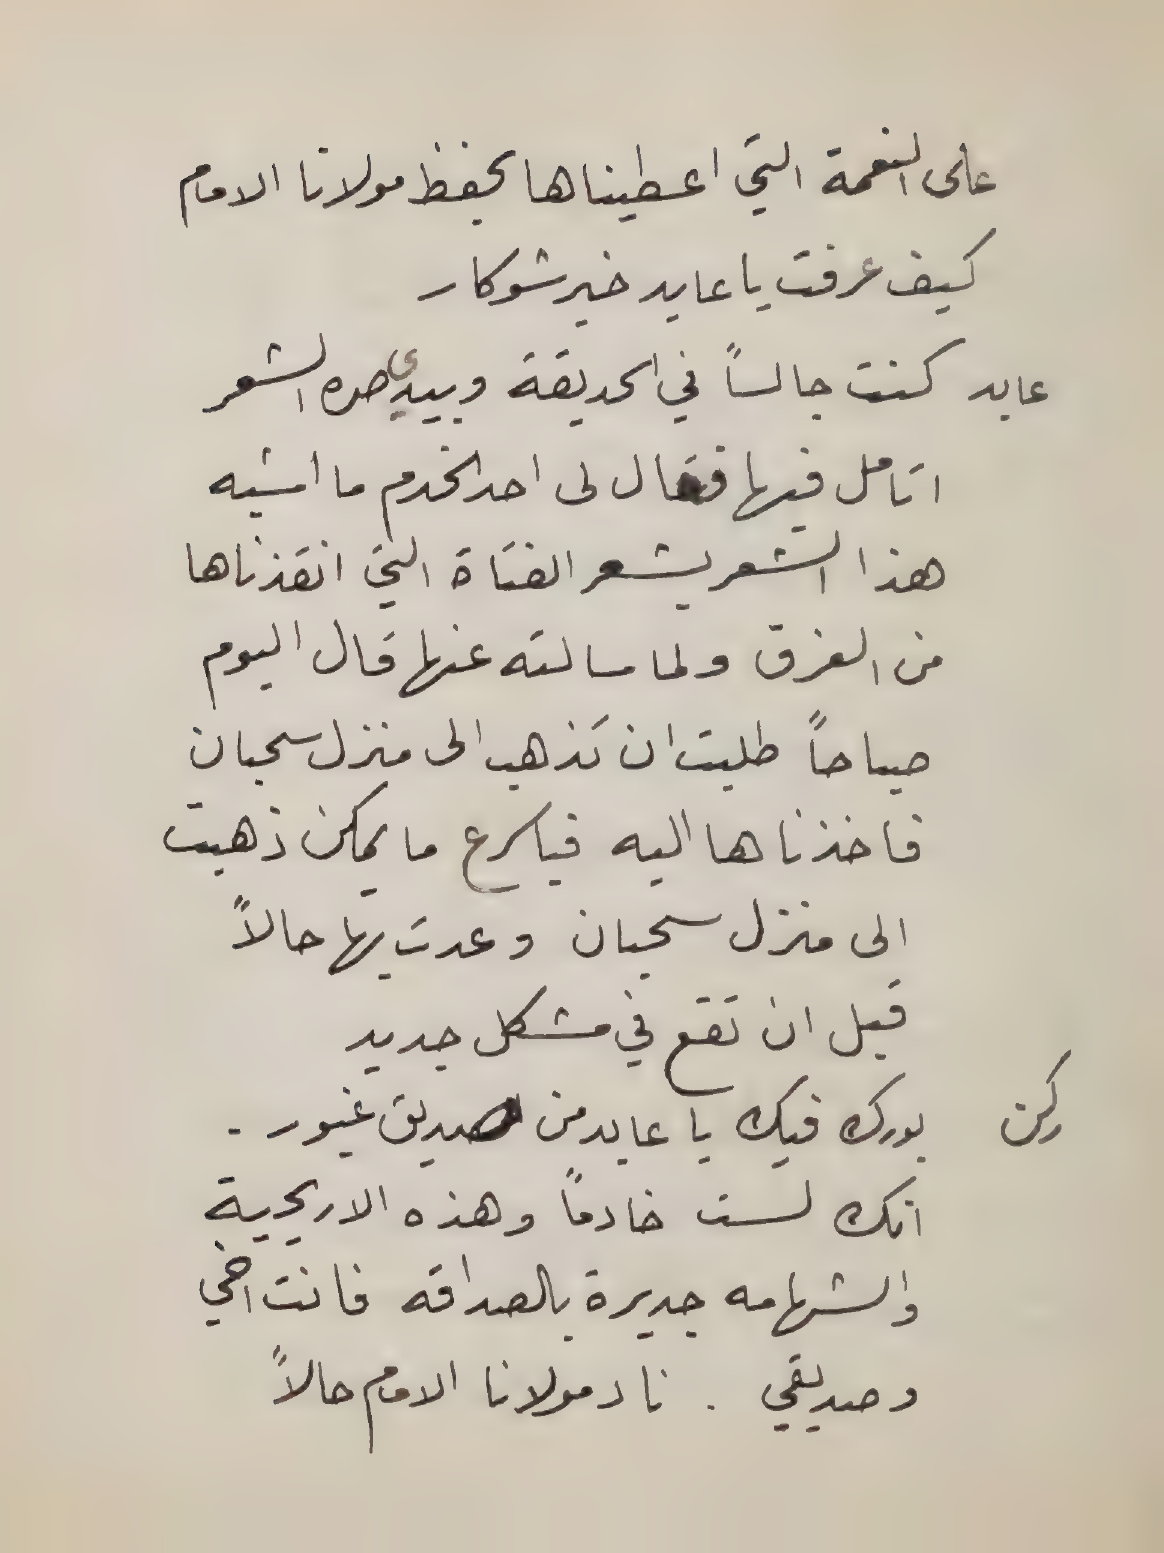 على النعمة التي اعطيناها بحفظ مولانا الامام
كيف عرفت يا عابد خبر شوكار
عابد كنت جالساً في الحديقة وبيدي صره الشعر
اتامل فيها فقال لى احد الخدم ما اشبه
هذا الشعر بشعر الفتاة التي انقذناها
من الغرق ولما سالته عنها قال اليوم
صباحاً طلبت ان تذهب الى منزل سحبان
فاخذناها اليه فباسرع ما يمكن ذهبت
الى منزل سحبان وعدت بها حالاً
قبل ان تقع في مشكل جديد
ركن بورك فيك يا عابد من صديق غيور .
انك لست خادماً وهذه الاريحية
والشهامه جديرة بالصداقه فانت اخي
وصديقي . ناد مولانا الامام حالاً